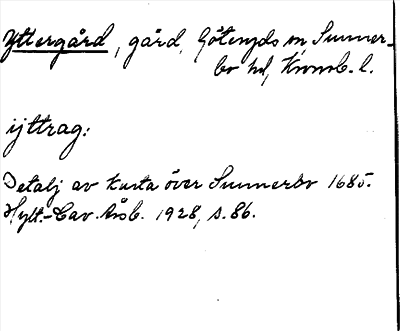 Yttergård, gård, Göteryds sn, Sunner-
bo hd, Kronob. l.
ijttrag:
Detalj av karta över Sunnerbo 1685.
Hylt.-Cav. årsb. 1928, s. 86.